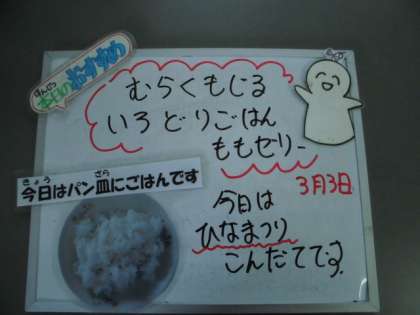 本日のおすすめ
むらくもじる
いろどりごはん
ももゼリー
3月3日
きょう ざら
今日はパン皿にごはんです
今日は
ひなまつり
こんだてです。